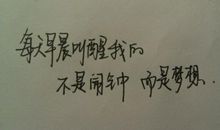 每天早晨叫醒我的
不是闹钟 而是梦想.